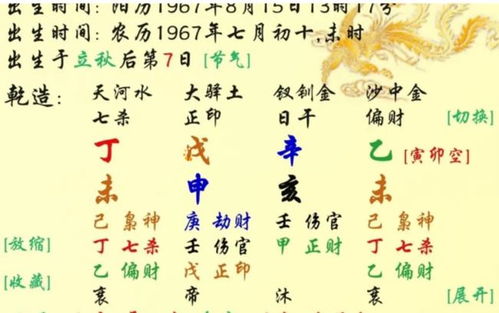 出生时间：阳历1967年8月15日13时17分
出生时间：农历1967年七月初十,未时
出生于立秋后第7日 [节气]
乾造： 天河水 大驿土 钗钏金 沙中金
七杀 正印 日干 偏财 [切换]
丁 戊 辛 乙 [寅卯空]
未 申 亥 未
己 枭神 庚 劫财 壬 伤官 己 枭神
[放缩] 丁 七杀 壬 伤官 甲 正财 丁 七杀
乙 偏财 戊 正印 乙 偏财
[收藏] 衰 帝 沐 衰 [展开]